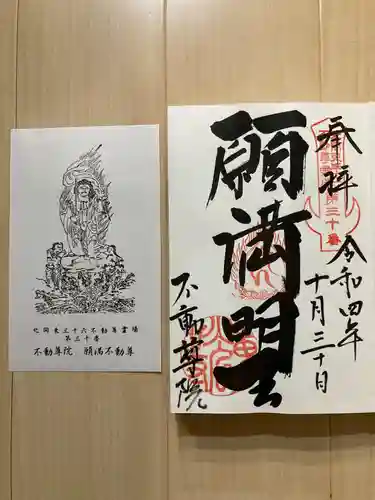 奉拝
令和四年
十月三十日
第三十番
願満明王
不動尊院
北関東三十六不動尊霊場
第三十番
不動尊院　願満不動尊